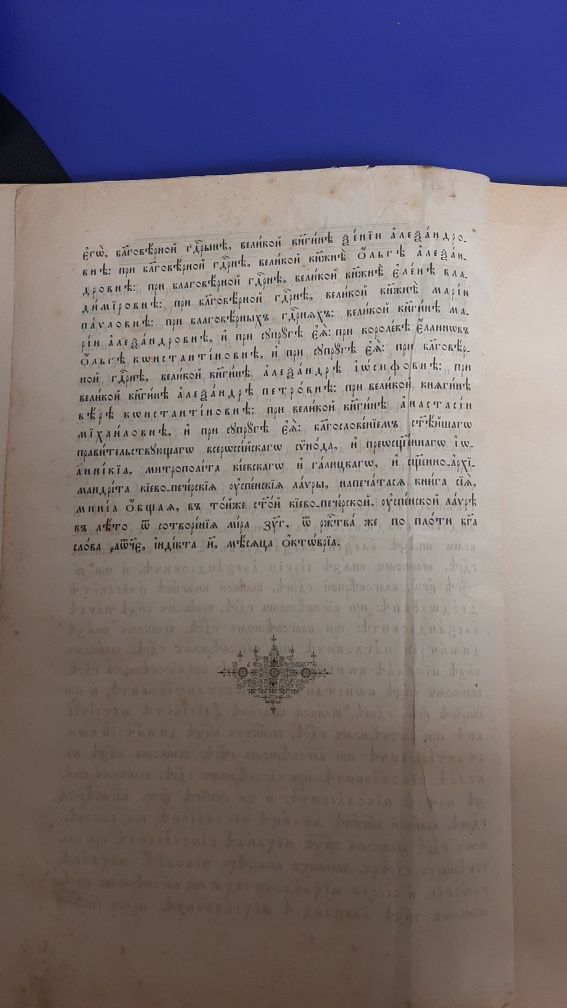 є҆гѡ̀, бл҃говѣ́рной гдⷭ҇рынѣ, вели́кой кнѧги́нѣ ѯе́нїи а҆леѯа́ндро-
внѣ: при бл҃говѣ́рной гдⷭ҇рнѣ, вели́кой кнѧжнѣ̀ ѻ҆́льгѣ а҆леѯа́н-
дровнѣ: при благовѣ́рной гдⷭ҇рнѣ, вели́кой кнѧжнѣ̀ є҆ле́нѣ вла-
ди́мїровнѣ: при бл҃говѣ́рной гдⷭ҇рнѣ, вели́кой кнѧжнѣ̀ марі́и
па́ѵловнѣ: при благовѣ́рныхъ гдⷭ҇рнѧхъ: вели́кой кнѧги́нѣ ма-
рі́и а҆леѯа́ндровнѣ, и҆ при сꙋпрꙋ́гѣ є҆ѧ̀: при короле́вѣ є҆́ллинѡвъ
ѻ҆́льгѣ кѡнстанті́новнѣ, и҆ при сꙋпрꙋ́гѣ є҆ѧ̀: при бл҃говѣ́р-
ной гдⷭ҇рнѣ, вели́кой кнѧги́нѣ а҆леѯа́ндрѣ і҆ѡ́сифовнѣ: при
вели́кой кнѧги́нѣ а҆леѯа́ндрѣ петро́внѣ: при вели́кой кнѧги́нѣ
вѣ́рѣ кѡнстанті́новнѣ: при вели́кой кнѧги́нѣ а҆настасі́и
мїха́иловнѣ, и҆ при сꙋпрꙋ́гѣ є҆ѧ̀: благослове́нїемъ ст҃ѣ́йшагѡ
прави́тельствꙋющагѡ всерѡссі́йскагѡ сѷно́да, и҆ преѡсщ҃е́ннагѡ і҆ѡ-
анни́кїа, митрополі́та кі́евскагѡ и҆ га́лицкагѡ, и҆ сщ҃е́нно-архї-
мандрі́та кі́ево-пече́рскїѧ ᲂу҆спе́нскїѧ ла́ѵры, напеча́тасѧ кни́га сїѧ̀,
мине́а ѻ҆́бщаѧ, въ то́йже ст҃о́й кі́ево-пече́рской, ᲂу҆спе́нской ла́ѵрѣ
въ лѣ́то ѿ сотворе́нїѧ мі́ра ҂зу҃г, ѿ ржⷭ҇тва́ же по пло́ти бг҃а
сло́ва ҂аѿч҃є, і҆нді́кта и҃, мѣ́сѧца ѻ҆ктѡ́врїа.